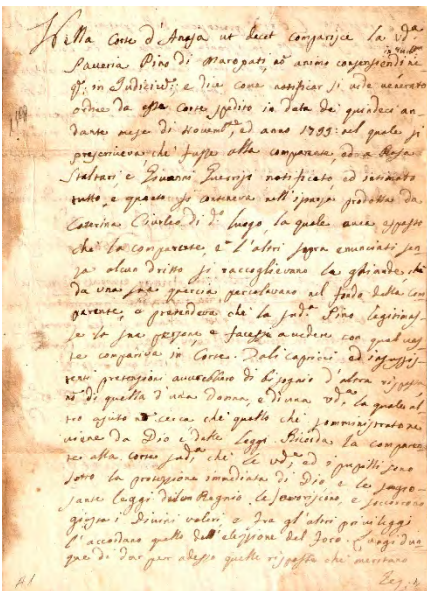 Nella Corte d'Anoja ut decet comparisce la V.da
Saveria Pino di Maropati, no animo consensiendi ne
in Judicio; e dice come notificar si vide venerato
ordine da essa Corte spedito in data de' quindeci an-
dante mese di Novem.e, ed anno 1799: nel quale si
prescriveva, che fusse alla comparente, ed a Rosa
Staltari, e Giovanni Guerrisi notificato, ed intimato
tutto, e quanto si conteneva nell'istanza prodotta da
Caterina Ciurleo di d.o luogo, la quale avea esposto
che la comparente, e l'altri sopra enunciati sen-
za alcun dritto si raccoglievano la ghianda, che
da una sua quercia percolavano nel fondo della com
parente, e pretendeva che la sud.a Pino legitimas-
se la sua persona, e facesse vedere con qual ves-
te compariva in Corte. Tali capricci, ed insussis-
tenti pretenzioni avrebbero di bisogno d'altra rispos
di quella d'una donna, e di una v.da, la quale al-
tro ajuto no cerca che quello che somministrato ne
viene da Dio, e dalle Leggi. Ricorda la comparen-
te alla Corte sud.a, che le v.de, ed i pupilli sono
sotto la protezione immediata di Dio, e le sagro-
sante leggi del un Regnio le favoriscono, e soccorrono
giusta i Divini voleri, e fra gl'altri privileggi
l'accordano quello dell'elezzione del Foro. Lungi dun-
que di dar per adesso quelle risposte che meritano